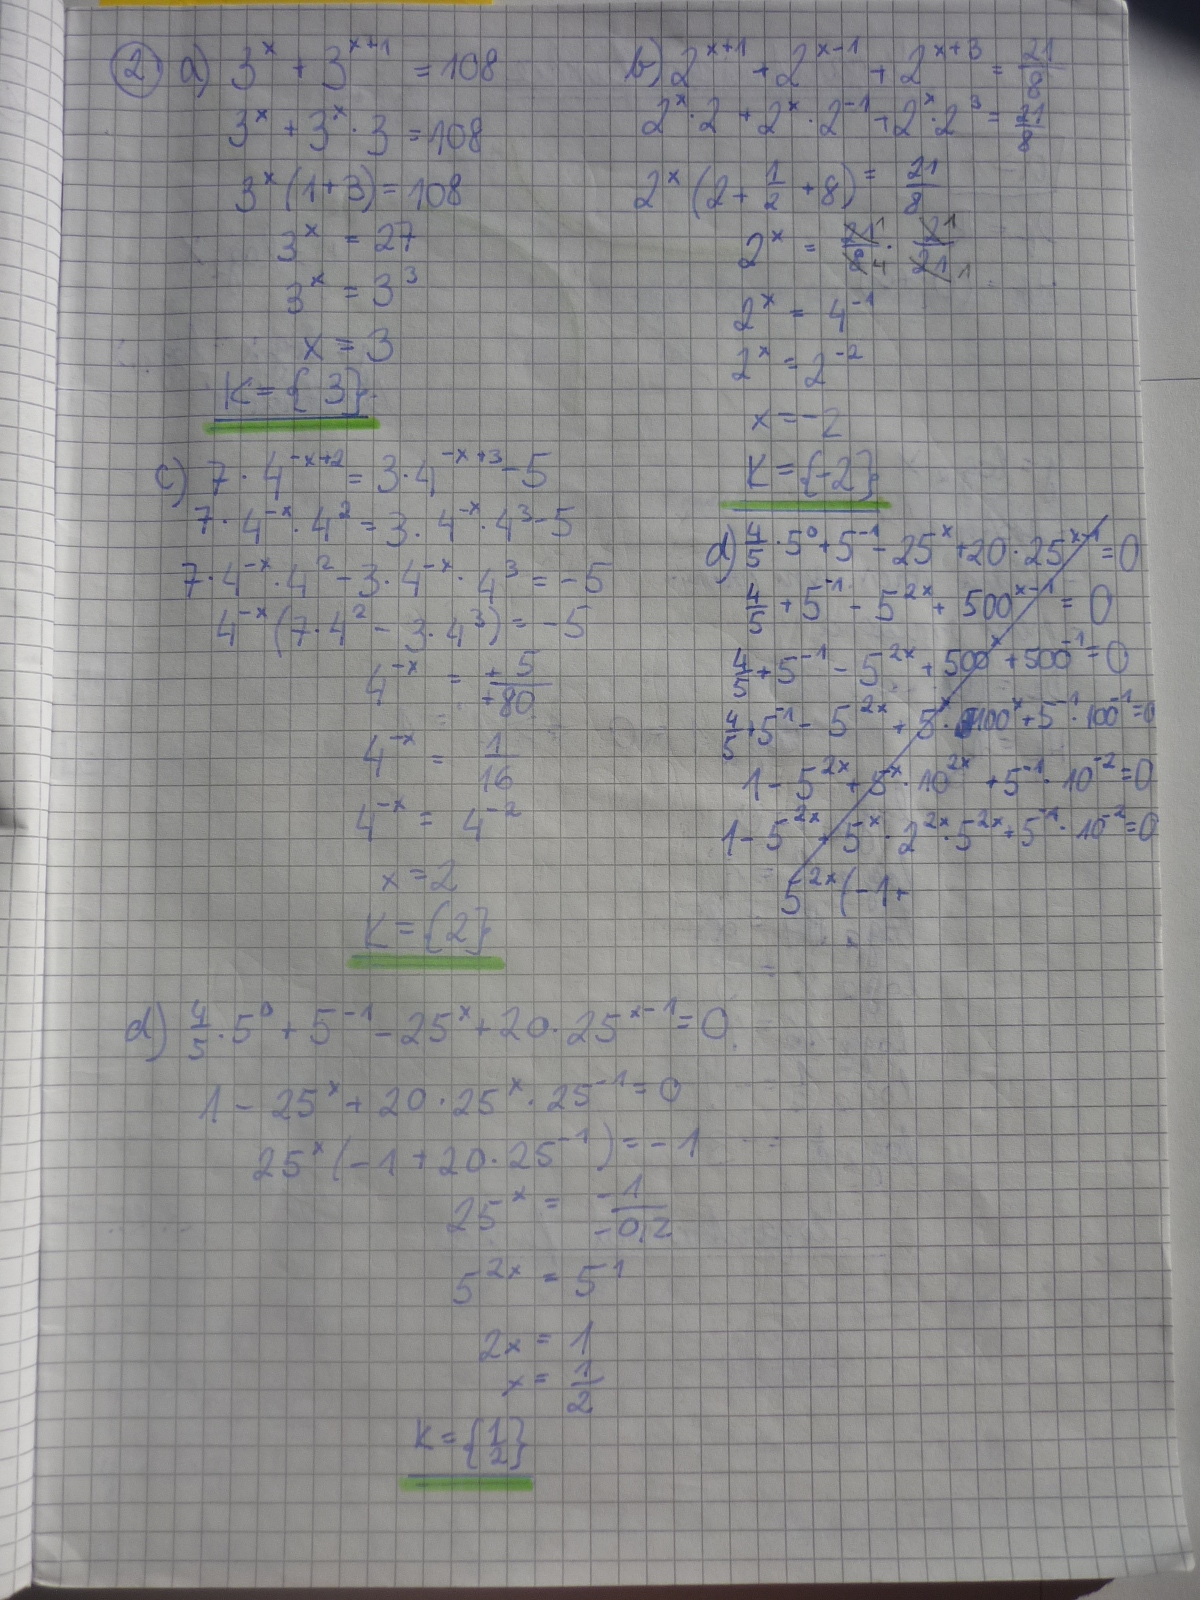 2 a) 3^x + 3^(x+1) = 108
3^x + 3^x · 3 = 108
3^x (1+3) = 108
3^x = 27
3^x = 3^3
x = 3
K = {3}
b) 2^(x+1) + 2^(x-1) + 2^(x+3) = 21/8
2^x · 2 + 2^x · 2^-1 + 2^x · 2^3 = 21/8
2^x (2 + 1/2 + 8) = 21/8
2^x = 21 1/8 4 · 2 1/21 1
2^x = 4^-1
2^x = 2^-2
x = -2
K = {-2}
c) 7 · 4^(-x+2) = 3 · 4^(-x+3) - 5
7 · 4^-x · 4^2 = 3 · 4^-x · 4^3 - 5
7 · 4^-x · 4^2 - 3 · 4^-x · 4^3 = -5
4^-x (7 · 4^2 - 3 · 4^3) = -5
4^-x = +5/+80
4^-x = 1/16
4^-x = 4^-2
x = 2
K = {2}
d) 4/5 · 5^0 + 5^-1 - 25^x + 20 · 25^(x-1) = 0
4/5 + 5^-1 - 5^2x + 500^(x-1) = 0
4/5 + 5^-1 - 5^2x + 500^x + 500^-1 = 0
4/5 + 5^-1 - 5^2x + 5^x · 100^x + 5^-1 · 100^-1 = 0
1 - 5^2x + 5^x · 10^2x + 5^-1 · 10^-2 = 0
1 - 5^2x + 5^x · 2^2x · 5^2x + 5^-1 · 10^-2 = 0
5^2x (-1 +
d) 4/5 · 5^0 + 5^-1 - 25^x + 20 · 25^(x-1) = 0
1 - 25^x + 20 · 25^x · 25^-1 = 0
25^x (-1 + 20 · 25^-1) = -1
25^x = -1/-0,2
5^2x = 5^1
2x = 1
x = 1/2
K = {1/2}